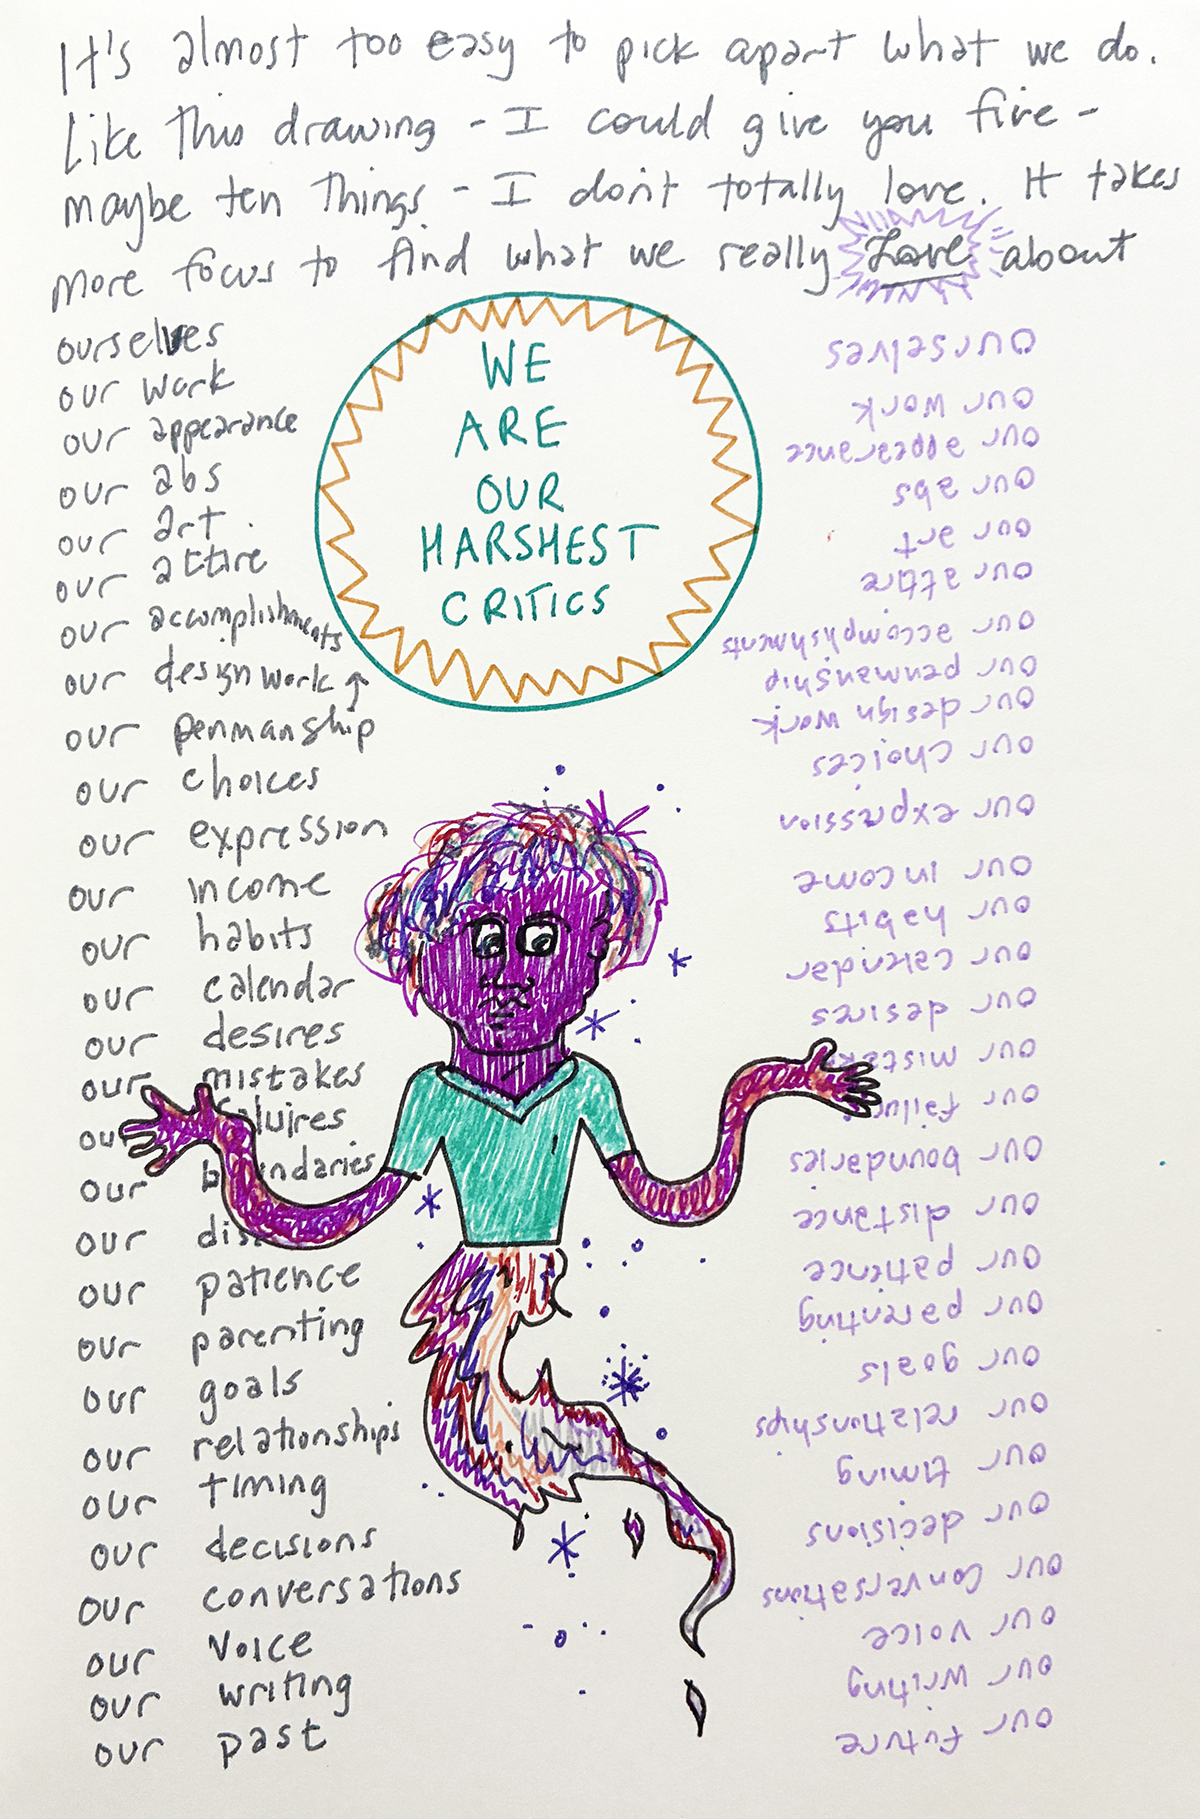 It's almost too easy to pick apart what we do.
Like this drawing - I could give you five -
maybe ten things - I don't totally love. It takes
more focus to find what we really Love about
WE
ARE
OUR
HARSHEST
CRITICS
ourselves
our work
our appearance
our abs
our art
our attire
our accomplishments
our design work
our penmanship
our choices
our expression
our income
our habits
our calendar
our desires
our mistakes
our faluires
our boundaries
our dis
our patience
our parenting
our goals
our relationships
our timing
our decisions
our conversations
our voice
our writing
our past
ourselves
our work
our appearance
our abs
our art
our attire
our accomplishments
our penmanship
our design work
our choices
our expression
our income
our habits
our calendar
our desires
our mistak
our failu
our boundaries
our distance
our patience
our parenting
our goals
our relationships
our timing
our decisions
our conversations
our voice
our writing
our future